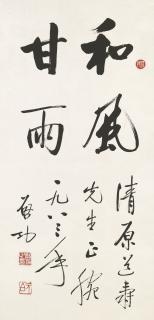 和風
甘雨
清原道寿
先生正腕
一九八三年
启功